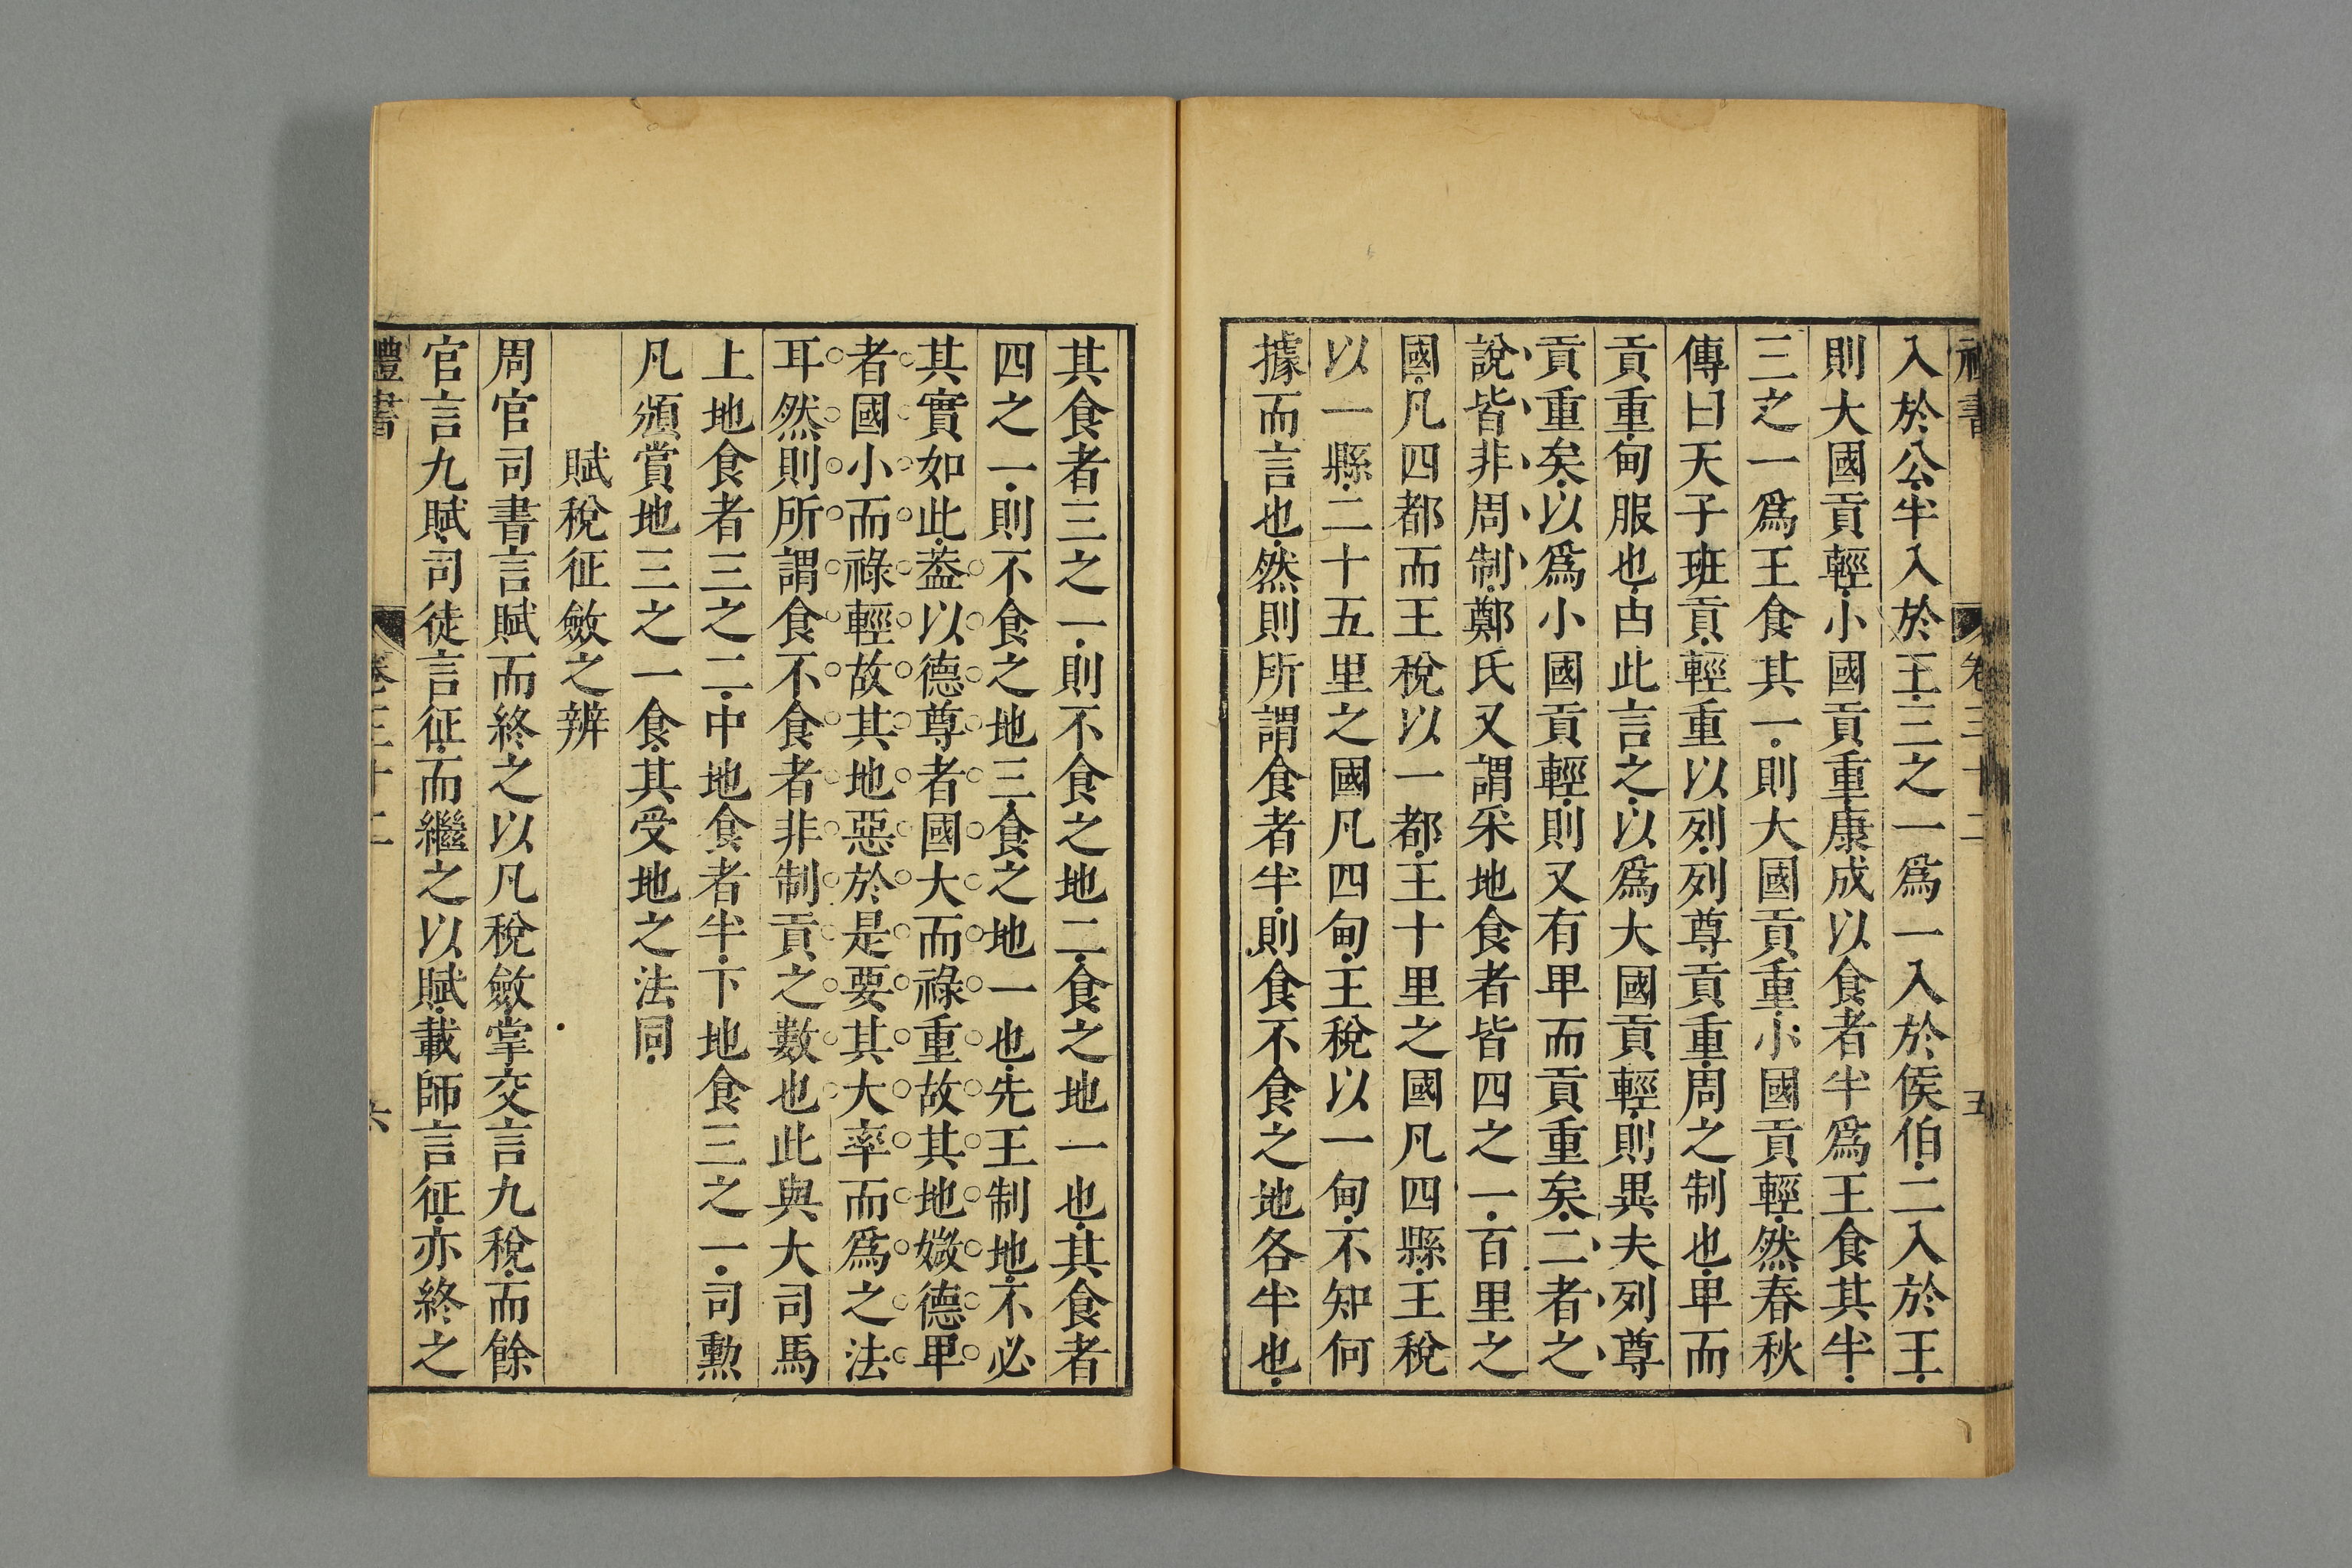 禮書 卷三十二 五
入於公半入於王三之一爲一入於侯伯二入於王
則大國貢輕小國貢重康成以食者半爲王食其半
三之一爲王食其一則大國貢重小國貢輕然春秋
傳曰天子班貢輕重以列列尊貢重周之制也卑而
貢重甸服也由此言之以爲大國貢輕則異夫列尊
貢重矣以爲小國貢輕則又有卑而貢重矣二者之
說皆非周制鄭氏又謂采地食者皆四之一百里之
國凡四都而王稅以一都王十里之國凡四縣王稅
以一縣二十五里之國凡四甸王稅以一甸不知何
據而言也然則所謂食者半則食不食之地各半也
其食者三之一則不食之地二食之地一也其食者
四之一則不食之地三食之地一也先王制地不必
其實如此葢以德尊者國大而祿重故其地媺德卑
者國小而祿輕故其地惡於是要其大率而爲之法
耳然則所謂食不食者非制貢之數也此與大司馬
上地食者三之二中地食者半下地食三之一司勲
凡頒賞地三之一食其受地之法同
賦稅征斂之辨
周官司書言賦而終之以凡稅斂掌交言九稅而餘
官言九賦司徒言征而繼之以賦載師言征亦終之
禮書 卷三十二 六